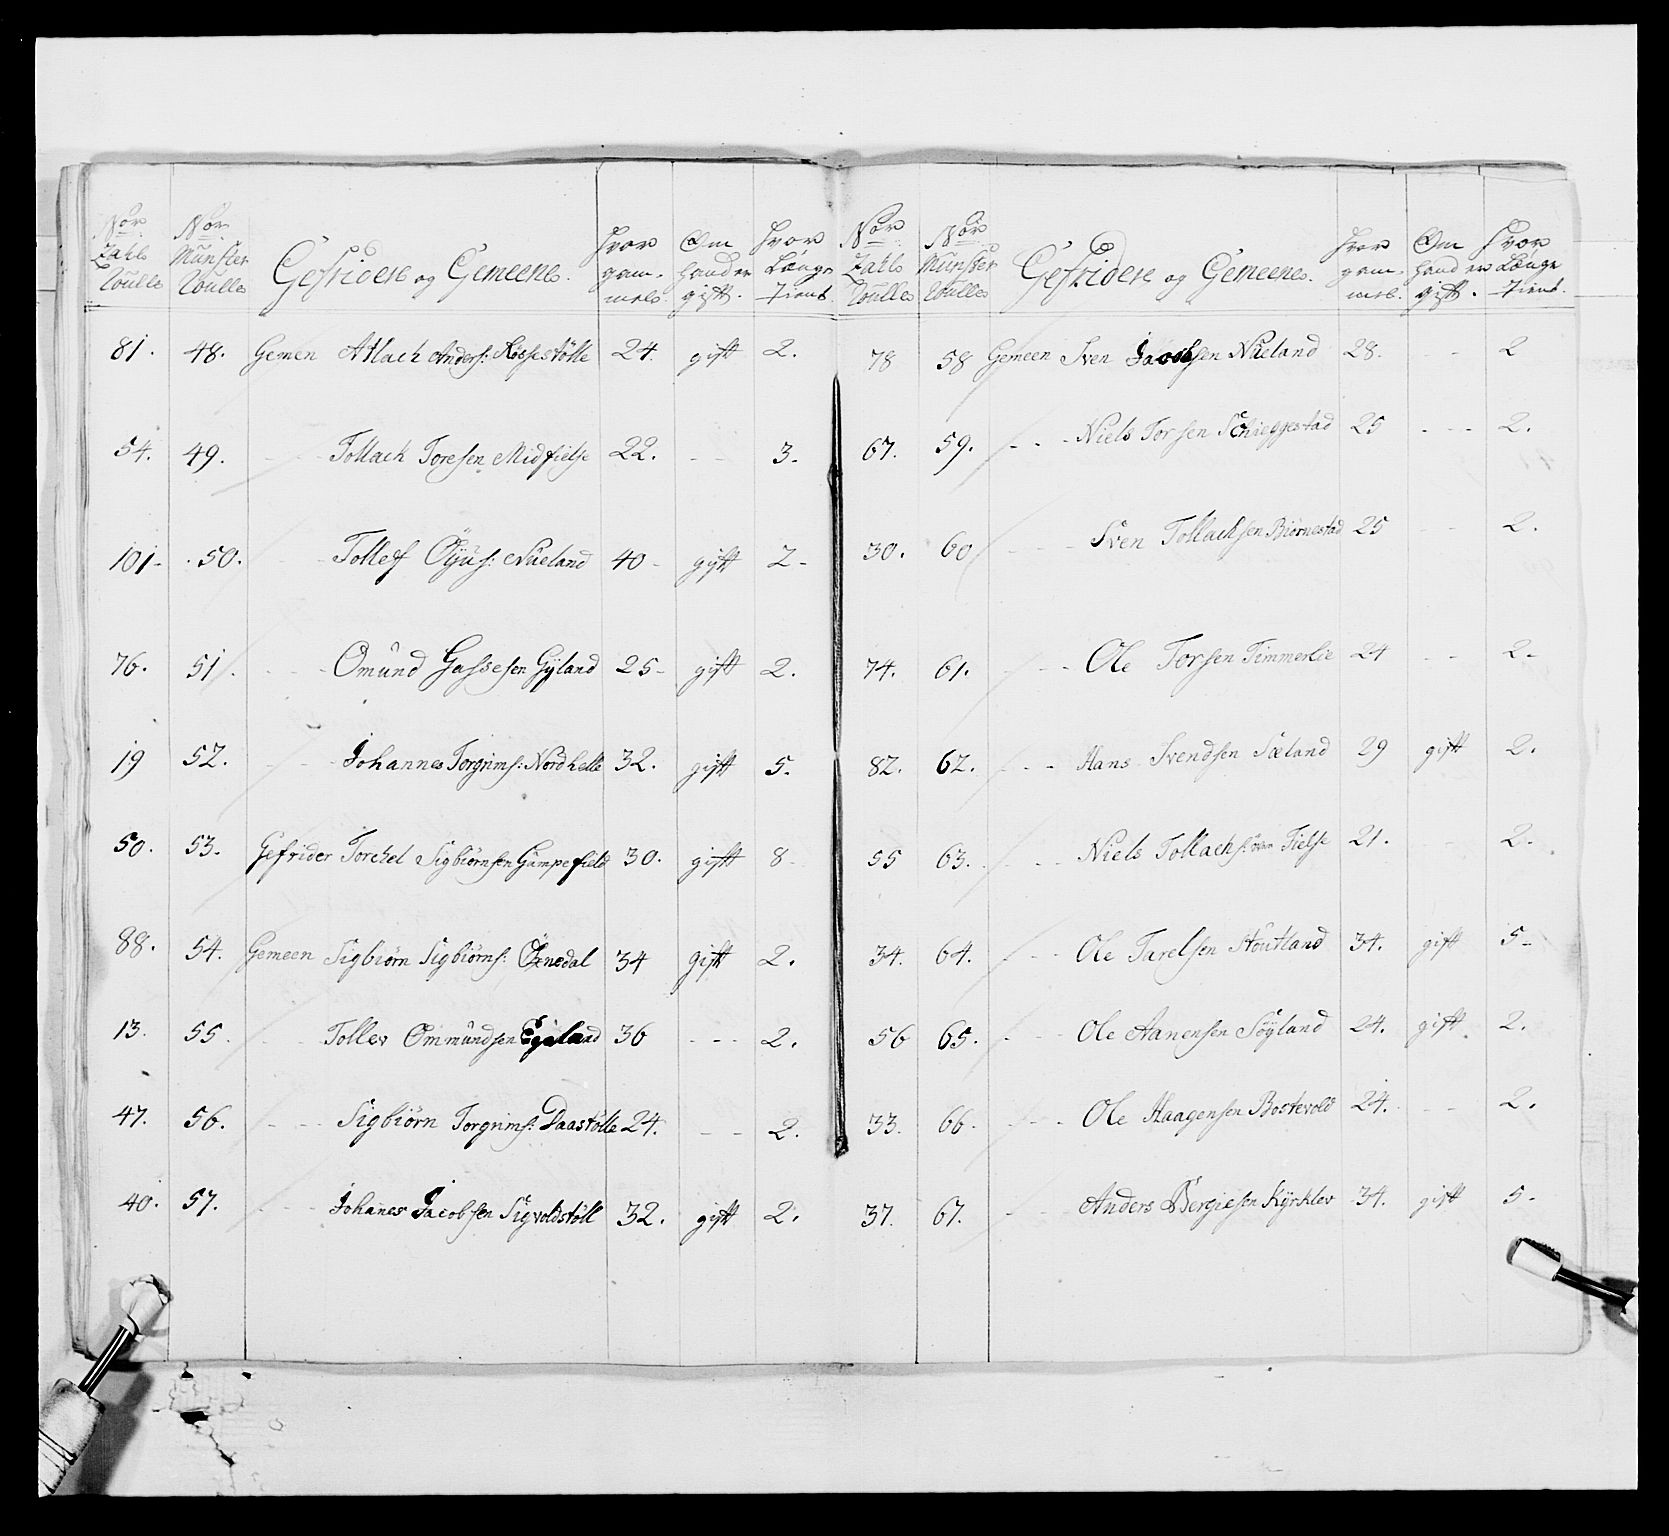 Nor Zahls Roulles | Nor Münster Roulles | Gefridere og Gemeenes. | hvor gammels. | Om hand er gift. | hvor Længe tient.
81. 48. Gemen Atlach Anders: Røssestølle 24. gift 2.
54. 49. - - Tollach Toresen Midfielse 22. - - 3.
101. 50. - - Tollef Öÿus: Nüeland 40 gift 2.
76. 51. - - Omünd Gassesen Gÿland 25 gift 2.
19 52. - - Johannes Torgrims: Nordhelle 32. gift 5.
50. 53. Gefrider Torckel Sigbiörnsen Gümpefield 30. gift 8
88. 54. Gemeen Sigbiörn Sigbiörns: Öxnedal 34 gift 2.
13. 55. - - Tollev Ommündsen Egeland 36 - - - 2.
47. 56. - - Sigbiörn Torgrims: Daastölle 24. - - 2.
40. 57. - - Johanes Jacobsen Sigvoldstöll 32. gift 2.
Nor Zahls Roulles | Nor Münster Roulles | Gefridere og Gemeenes. | hvor gammel. | Om hand er gift. | hvor Længe tient.
78 58 Gemeen Sven Jacobsen Nüeland 28. - - 2
67. 59. - - Niels Torsen Schieggestad 25 - - - 2.
30. 60 - - Sven Tollachsen Biörnestad 25 - - 2.
74. 61. - - Ole Torsen Timmerlie 24 - - 2.
82. 62. - - Hans Svendsen Sæland 29 gift 2.
55 63. - - Niels Tollachs: övre Fielse 21. - - 2.
34. 64. - - Ole Tarelsen Stoutland 34. gift 5.
56 65. - - Ole Aanensen Söÿland 24. gift 2.
33. 66. - - Ole Haagensen Bostevold 24. - - 2.
37. 67. - - Anders Bergiesen Kÿrklev 34. gift 5.